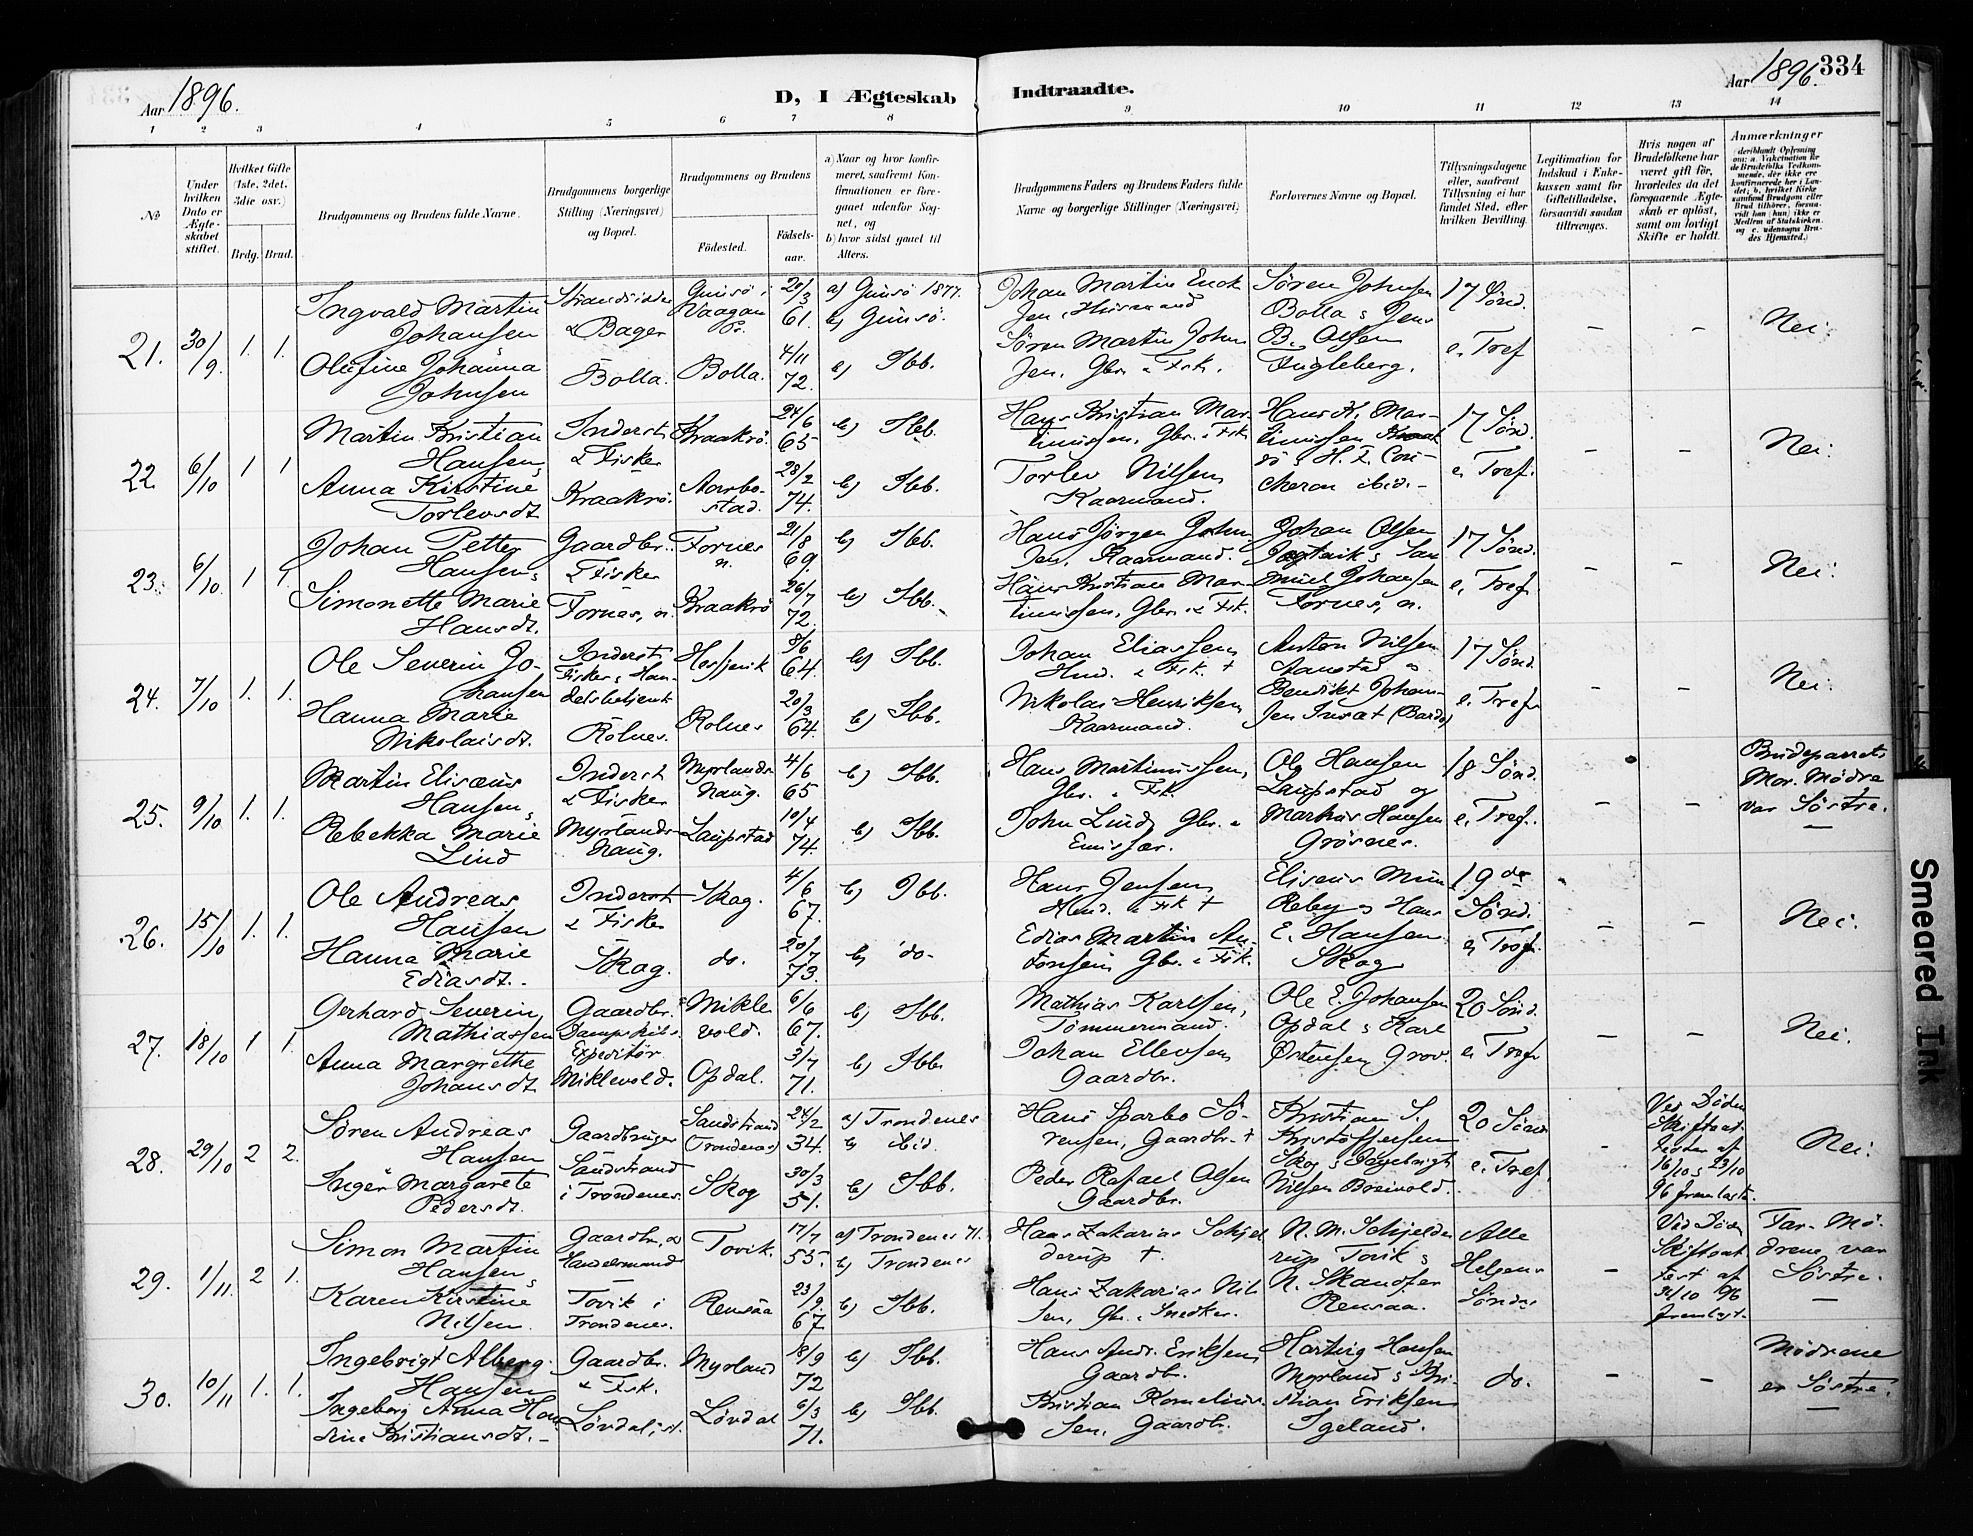 Aar 1896.
D, I Ægteskab Indtraadte.
Aar 1896. 334
1 2 3 4 5 6 7 8 9 10 11 12 13 14
No
Under hvilken Dato er Ægteskabet stiftet.
Hvilket Gifte (1ste, 2det, 3die osv.)
Brdg. Brud.
Brudgommens og Brudens fulde Navne.
Brudgommens borgerlige Stilling (Næringsvei) og Bopæl.
Brudgommens og Brudens
Fødested.
Fødselsaar.
a) Naar og hvor konfirmeret, saafremt Konfirmationen er foregaaet udenfor Sognet, og
b) hvor sidst gaaet til Alters.
Brudgommens Faders og Brudens Faders fulde Navne og borgerlige Stillinger (Næringsvei)
Forlovernes Navne og Bopæl.
Tillysningsdagene eller, saafremt Tillysning ei har fundet Sted, efter hvilken Bevilling.
Legitimation for Indskud i Enkekassen samt for Giftetilladelse, forsaavidt saadan tiltrænges.
Hvis nogen af Brudefolkene har været gift før, hvorledes da det foregaaende Ægteskab er opløst, samt om lovligt Skifte er holdt.
Anmærkninger
21. 30/9 1. 1.
Ingvald Martin Johansen
Olufine Johanna Johnsen
& Bager
Bolla.
Gimsø i Vaagan Pr.
Bolla.
20/3 61.
4/11 72.
a) Gimsø 1877.
b) Gimsø.
b) Ibb.
Johan Martin Enoksen, Husmand
Søren Martin Johnsen, Gbr. & Fsk.
Søren Johnsen Bolla & Jens B. Olsen Engleberg.
17 Sønd. e. Tref
– –
Nei.
22. 6/10 1 1
Martin Kristian Hansen,
Anna Kirstine Torlevsdt.
Inderst & Fisker
Kraakrø.
Kraakrø.
Aarbostad.
24/6 65
28/2 74.
b) Ibb.
b) Ibb.
Hans Kristian Martinussen, Gbr. & Fsk.
Torlev Nilsen, Kaarmand.
Hans K. Martinussen Kraakrø & H. F. Concheron ibid. –
17 Sønd. e. Tref.
– –
Nei.
23. 6/10 1 1.
Johan Petter Hansen,
Simonette Marie Hansdt.
Gaardbr. & Fisker
Fornes, n.
Fornes n.
Kraakrø
21/8 69.
26/7 72.
b) Ibb.
b) Ibb.
Hans Jørgen Johnsen, Kaarmand.
Hans Kristian Martinussen, Gbr. & Fsk.
Johan Olsen & Samuel Johansen Fornes, n.
17 Sønd. e. Tref
– –
Nei.
24. 7/10 1. 1.
Ole Severin Johansen
Hanna Marie Nikolaisdt.
Inderst, Fisker & Handelsbetjent
Rolnes.
Rolnes
8/6 64.
20/3 64.
b) Ibb.
b) Ibb.
Johan Eliassen, Hmd. & Fsk. †
Nikolai Henriksen, Kaarmand.
Anton Nilsen Aanstad & Benedikt Johansen Inset (Bardo)
17 Sønd. e. Tref
– –
Nei.
25. 9/10 1. 1.
Martin Elisæus Hansen,
Rebekka Marie Lind
Inderst & Fisker
Myrlandshaug.
Myrlandshaug.
Laupstad
4/6 65
10/4 74.
b) Ibb.
b) Ibb.
Hans Martinussen, Gbr. & Fsk.
John Lind, Gbr. & Emissær.
Ole Hansen Laupstad og Markus Hansen Grøsnes.
18 Sønd. e. Tref.
– –
Brudeparrets Mor. Mødre var Søstre.
26. 15/10 1. 1.
Ole Andreas Hansen
Hanna Marie Ediasdt.
Inderst & Fisker
Skog.
Skog.
do.
4/6 67.
20/7 73.
b) Ibb.
b) do.
Hans Jensen, Hmd. & Fsk †
Edias Martin Antonsen Gbr. & Fsk.
Eliseus Reby & Hans E. Hansen Skog
19de Sønd. e. Tref.
– –
Nei.
27. 18/10 1 1.
Gerhard Severin Mathiassen
Anna Margrethe Johansdt.
Gaardbr. & Dampskibs-Expeditør
Miklevold.
Miklevold.
Opdal.
6/6 67.
3/7 71.
b) Ibb.
b) Ibb.
Mathias Karlsen, Tømmermand.
Johan Ellevsen Gaardbr.
Ole E. Johansen Opdal & Karl Østensen Grov.
20 Sønd. e. Tref
– –
Nei.
28. 29/10 2 2.
Søren Andreas Hansen
Inger Margarete Pedersdt.
Gaardbruger
Sandstrand i Trondenes.
Sandstrand (Trondenes)
Skog
24/2 34.
30/3 51.
a) Trondenes
b) ibid.
b) Ibb.
Hans Sparbo Sørensen, Gaardbr. †
Peder Rafael Olsen Gaardbr.
Kristian S. Kristoffersen Skog & Ingebrigt Nilsen Breivold.
20 Sønd. e. Tref.
–
Ved Døden Skifteattester af 16/10 & 23/10 96 fremlagte.
Nei.
29. 1/11. 2 1.
Simon Martin Hansen,
Karen Kirstine Nilsen.
Gaardbr. & Handelsmand
Tovik i Trondenes.
Tovik.
Rensaa
17/7 55.
23/9. 67
a) Trondenes 71.
b) Trondenes
b) Ibb.
Hans Zakarias Schjelderup †.
Hans Zakarias Nilsen, Gbr. & Snedker.
N. M. Schjelderup Tovik & N. Skandfer Rensaa.
Alle Helgens Søndag
–
Ved Døden Skifteatt test af 31/10 96 fremlagt.
Far. Mødrene var Søstre.
30. 10/11 1. 1.
Ingebrigt Alberg Hansen
Ingeborg Anna Hansine Kristiansdt. –
Gaardbr. & Fsk.
Løvdal, st.
Myrland
Løvdal
18/9 72
6/3 71.
b) Ibb.
b) Ibb.
Hans Andr. Eriksen, Gaardbr.
Kristian Kornelius­sen, Gaardbr.
Hartvig Hansen Myrland & Kristian Eriksen Igeland.
do.
– –
Mødrene er Søstre.
Smeared Ink